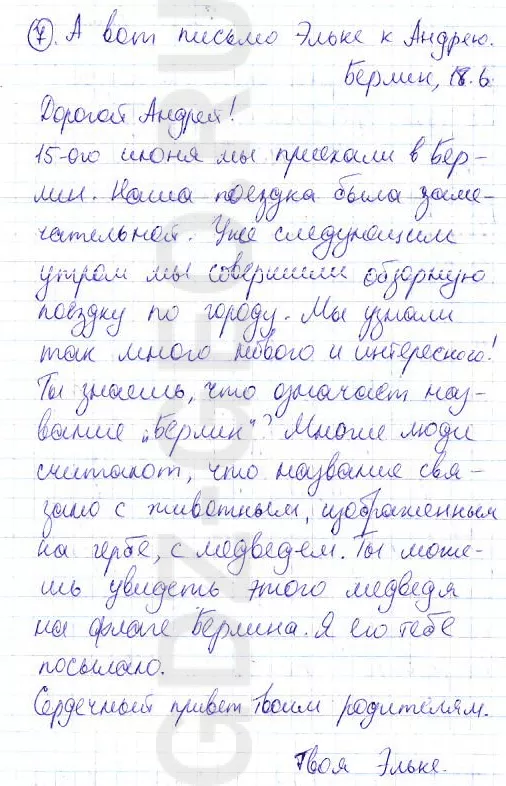 7. А вот письмо Эльке к Андрею.
Берлин, 18.6
Дорогой Андрей!
15-ого июня мы приехали в Бер-
лин. Наша поездка была заме-
чательной. Уже следующим
утром мы совершили обзорную
поездку по городу. Мы узнали
так много нового и интересного!
Ты знаешь, что означает наз-
вание „Берлин“? Многие люди
считают, что название свя-
зано с животным, изображенным
на гербе, с медведем. Ты може-
шь увидеть этого медведя
на флаге Берлина. Я его тебе
посылаю.
Сердечный привет твоим родителям.
Твоя Эльке.
GDZ-GEO.RU